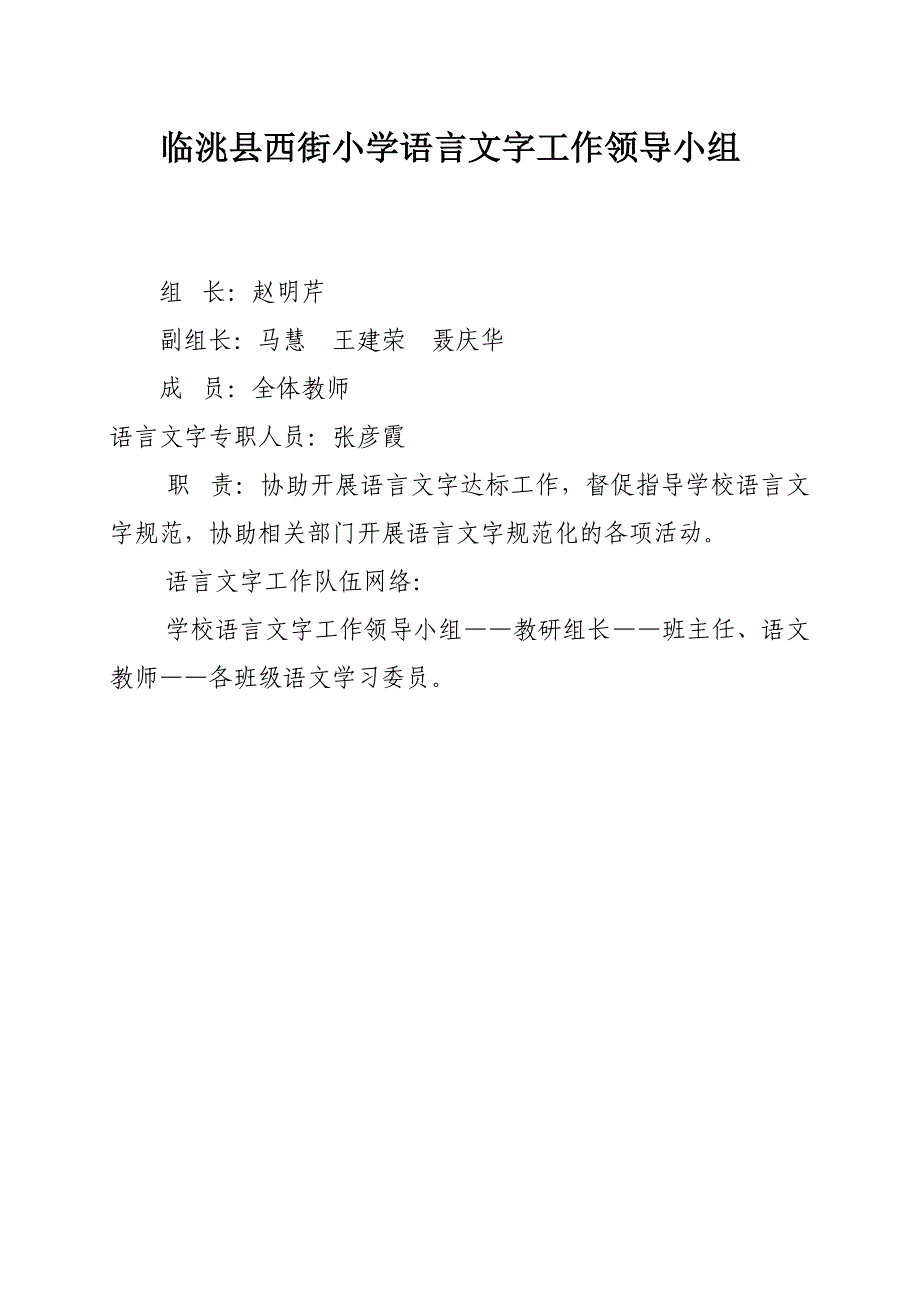 临洮县西街小学语言文字工作领导小组
组 长：赵明芹
副组长：马慧 王建荣 聂庆华
成 员：全体教师
语言文字专职人员：张彦霞
职 责：协助开展语言文字达标工作，督促指导学校语言文
字规范，协助相关部门开展语言文字规范化的各项活动。
语言文字工作队伍网络：
学校语言文字工作领导小组——教研组长——班主任、语文
教师——各班级语文学习委员。